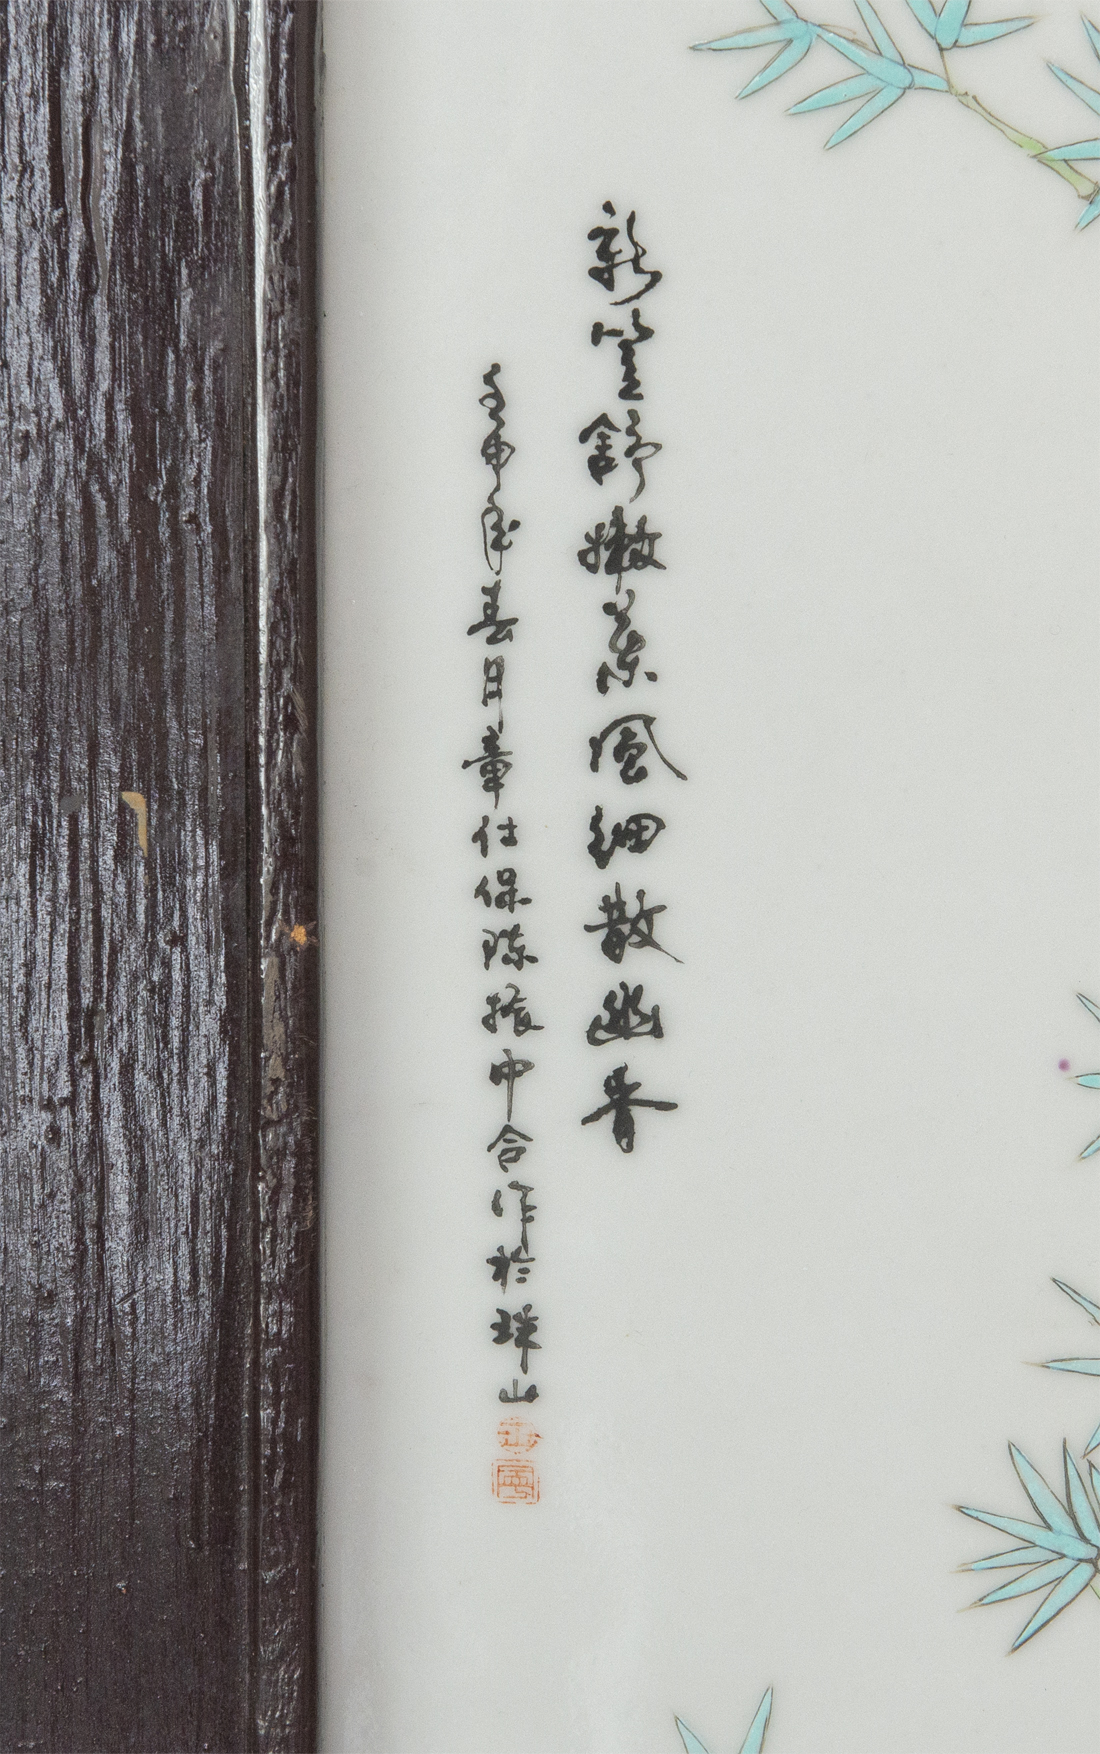 新篁舒嫩葉風細散幽香
壬申年春月章仕保陈振中合作於珠山